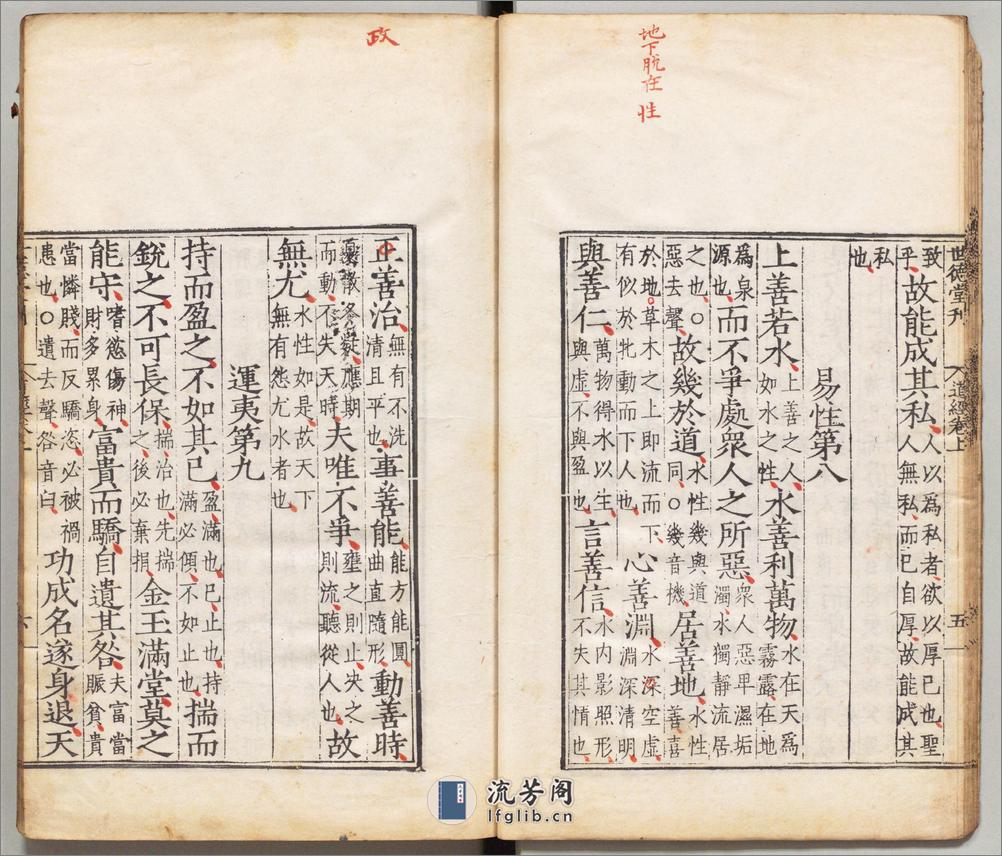 地下脫在
性
世德堂刊 道經卷上 五
致乎故能成其私人以爲私者欲以厚己也聖人無私而己自厚故能成其
私也
易性第八
上善若水上善之人如水之性水善利萬物水在天爲霧露在地
爲泉源也而不爭處衆人之所惡衆人惡卑濕垢濁水獨靜流居
之也○惡去聲故幾於道水性幾與道同○幾音機居善地水性善喜
於地草木之上即流而下有似於牝動而下人也心善淵水深空虛淵深清明
與善仁萬物得水以生與虛不與盈也言善信水内影照形不失其情也
政
正善治無有不洗清且平也事善能能方能圓曲直隨形動善時
夏散冬凝應期而動不失天時夫唯不爭壅之則止決之則流聽從人也故
無尤水性如是故天下無有怨尤水者也
運夷第九
持而盈之不如其已盈滿也已止也持滿必傾不如止也揣而
銳之不可長保揣治也先揣之後必棄捐金玉滿堂莫之
能守嗜慾傷神財多累身富貴而驕自遺其咎夫富當賑貧貴
當憐賤而反驕恣必被禍患也○遺去聲咎音臼功成名遂身退天
流芳阁
lfglib.cn